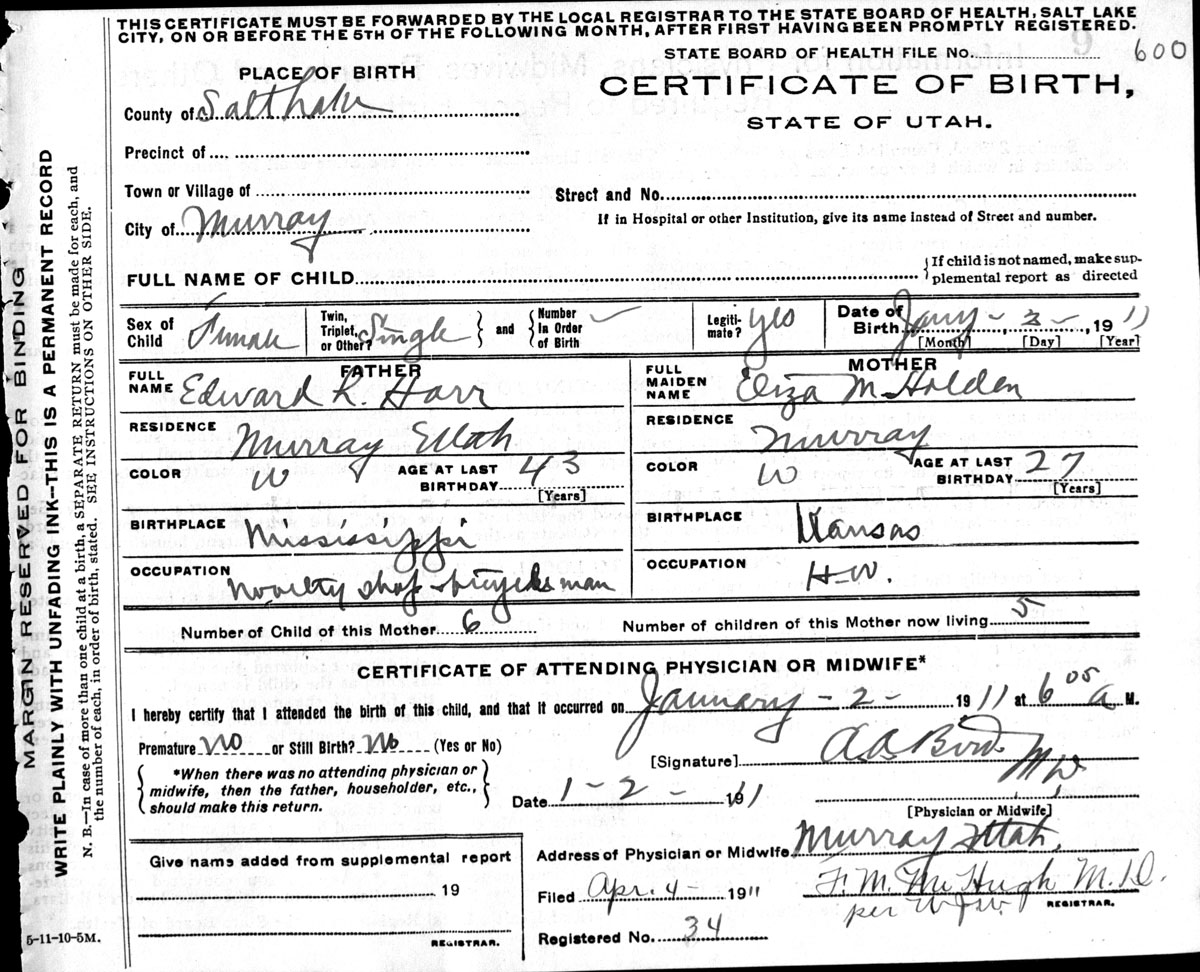 THIS CERTIFICATE MUST BE FORWARDED BY THE LOCAL REGISTRAR TO THE STATE BOARD OF HEALTH, SALT LAKE
CITY, ON OR BEFORE THE 5TH OF THE FOLLOWING MONTH, AFTER FIRST HAVING BEEN PROMPTLY REGISTERED.
STATE BOARD OF HEALTH FILE No. 600
PLACE OF BIRTH
CERTIFICATE OF BIRTH,
STATE OF UTAH.
County of Salt Lake
Precinct of
Town or Village of
Street and No.
City of Murray
If in Hospital or other Institution, give its name instead of Street and number.
FULL NAME OF CHILD
{If child is not named, make sup-
plemental report as directed
Sex of Child Female
Twin, Triplet, or Other? Single } and { Number In Order of Birth
Legiti-mate? Yes
Date of Birth Jany - 2 -, 1911
[Month] [Day] [Year]
FATHER
FULL NAME Edward R. Harr
RESIDENCE Murray Utah
COLOR W AGE AT LAST BIRTHDAY 43 [Years]
BIRTHPLACE Mississippi
OCCUPATION Novelty shop - bicycles man
MOTHER
FULL MAIDEN NAME Eliza M. Holden
RESIDENCE Murray
COLOR W AGE AT LAST BIRTHDAY 27 [Years]
BIRTHPLACE Kansas
OCCUPATION H-W.
Number of Child of this Mother 6 Number of children of this Mother now living 5
CERTIFICATE OF ATTENDING PHYSICIAN OR MIDWIFE*
I hereby certify that I attended the birth of this child, and that it occurred on January - 2 - 1911 at 6 05 a M.
Premature No or Still Birth? No (Yes or No)
[Signature] A.A. Bird M D
{ *When there was no attending physician or
midwife, then the father, householder, etc.,
should make this return. }
Date 1 - 2 - 1911
[Physician or Midwife]
Give name added from supplemental report
19
REGISTRAR.
Address of Physician or Midwife Murray Utah.
Filed Apr. 4 - 1911 F. M. McHugh M.D.
REGISTRAR.
per
Registered No. 34
5-11-10-5M.
MARGIN RESERVED FOR BINDING
WRITE PLAINLY WITH UNFADING INK--THIS IS A PERMANENT RECORD
N. B.—In case of more than one child at a birth, a SEPARATE RETURN must be made for each, and
the number of each, in order of birth, stated. SEE INSTRUCTIONS ON OTHER SIDE.